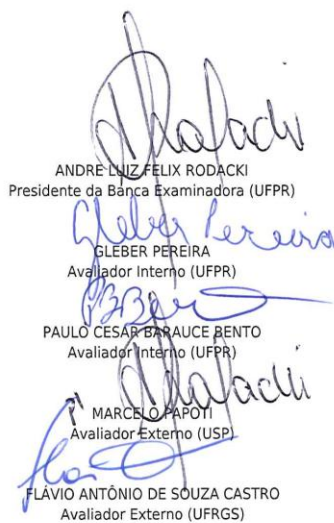 Rodacki
ANDRE LUIZ FELIX RODACKI
Presidente da Banca Examinadora (UFPR)
Gleber Pereira
GLEBER PEREIRA
Avaliador Interno (UFPR)
PAULO CESAR BARAUCE BENTO
Avaliador Interno (UFPR)
Rodacki
P/
MARCELO PAPOTI
Avaliador Externo (USP)
FLÁVIO ANTÔNIO DE SOUZA CASTRO
Avaliador Externo (UFRGS)